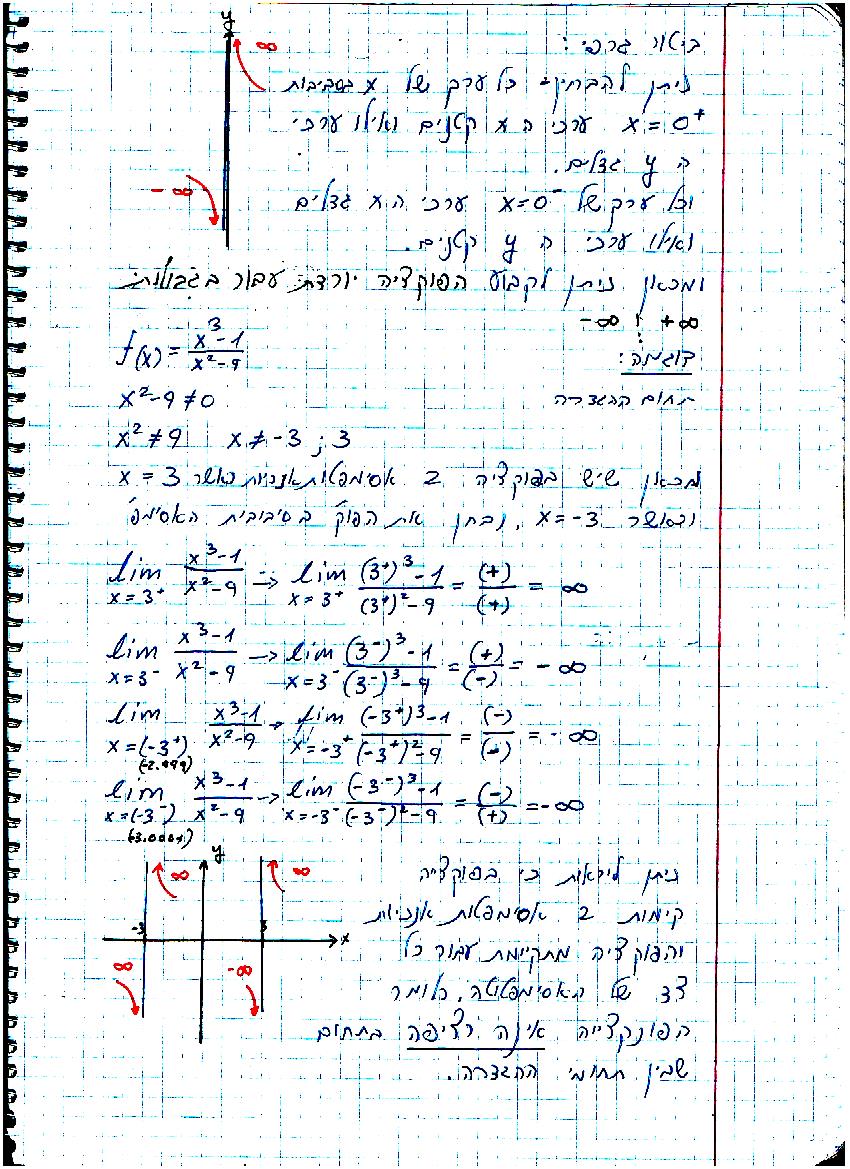 y
∞
ביאור גרפי:
ניתן להבחין כל ערך של x בסביבות
x = 0⁺ ערכי ה x קטנים ואילו ערכי
ה y גדלים.
-∞
וכל ערך של x=0⁻ ערכי ה x גדלים
ואילו ערכי ה y קטנים.
ומכאן ניתן לקבוע הפוקציה יורדת עבור בגבולות:
-∞ ו +∞
דוגמה:
f(x) = (x³-1)/(x²-9)
תחום ההגדרה x²-9≠0
x²≠9 x≠-3 ; 3
מכאן שיש בפוקציה 2 אסימפטות אנכיות כאשר x = 3
וכאשר x=-3, נבחן את הפוק' בסיבובית האסימפ'
lim x=3⁺ (x³-1)/(x²-9) → lim x=3⁺ ((3⁺)³-1)/((3⁺)²-9) = (+)/(+) = ∞
lim x=3⁻ (x³-1)/(x²-9) → lim x=3⁻ ((3⁻)³-1)/((3⁻)³-9) = (+)/(-) = -∞
lim x=(-3⁺) (x³-1)/(x²-9) → lim x=-3⁺ ((-3⁺)³-1)/((-3⁺)²-9) = (-)/(+) = -∞
(-2.999)
lim x=(-3⁻) (x³-1)/(x²-9) → lim x=-3⁻ ((-3⁻)³-1)/((-3⁻)²-9) = (-)/(+) = -∞
(-3.0001)
y
∞ ∞
-3 3 x
∞ -∞
ניתן ליראות כי בפוקצייה
קימות 2 אסימפטות אנכיות
והפוקציה מתקיימת עבור כל
צד של האסימפטוטה, כלומר
הפונקצייה אינה רציפה בתחום
שבין תחומי ההגדרה.